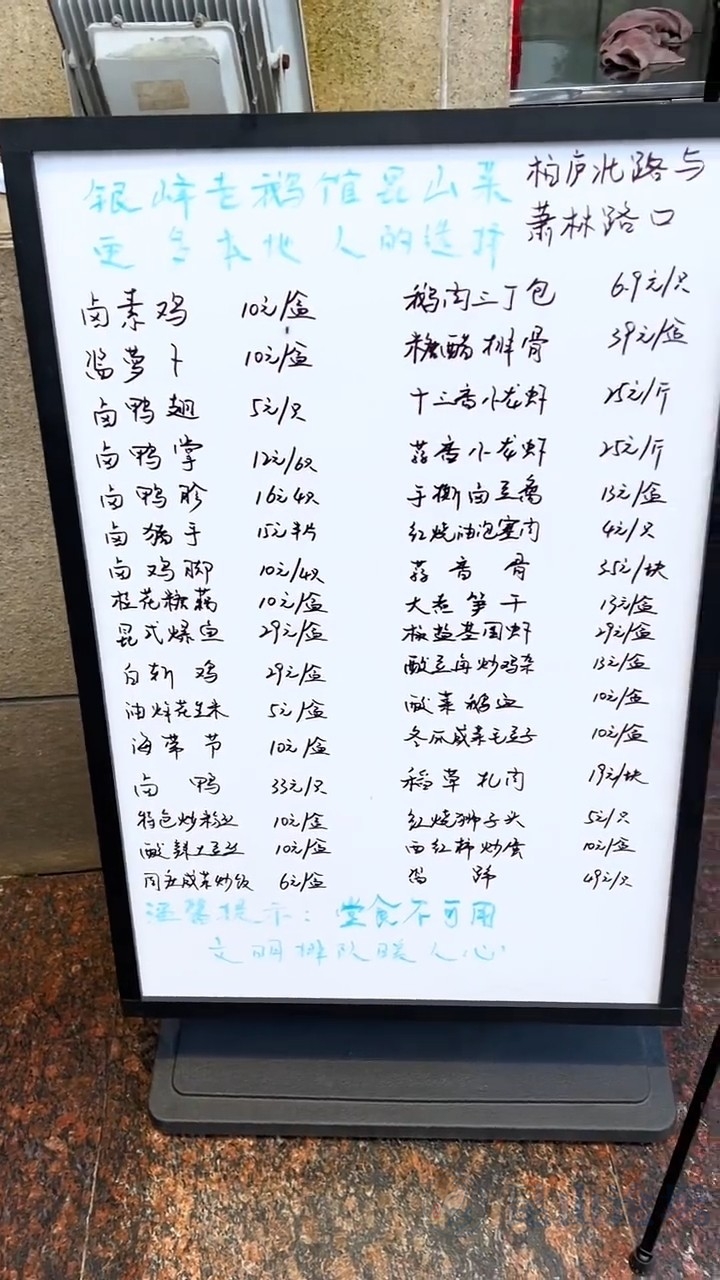 银峰老鹅馆昆山菜
更多本地人的选择
柏庐北路与
萧林路口
卤素鸡 10元/盒
酱萝卜 10元/盒
卤鸭翅 5元/只
卤鸭掌 12元/6只
卤鸭胗 16元4只
卤猪手 15元半片
卤鸡脚 10元/4只
桂花糖藕 10元/盒
昆式爆鱼 29元/盒
白斩鸡 29元/盒
油炸花生米 5元/盒
海带节 10元/盒
卤鸭 33元/只
特色炒粉丝 10元/盒
酸辣土豆丝 10元/盒
肉丝咸菜炒饭 6元/盒
鹅肉三丁包 6.9元/只
糖醋排骨 39元/盒
十三香小龙虾 25元/斤
蒜香小龙虾 25元/斤
手撕卤豆腐 13元/盒
红烧油泡塞肉 4元/只
蒜香骨 35元/块
大煮笋干 13元/盒
椒盐基围虾 29元/盒
酸豆角炒鸡杂 13元/盒
酸菜鹅血 10元/盒
冬瓜咸菜毛豆子 10元/盒
稻草扎肉 19元/块
红烧狮子头 5元/只
西红柿炒蛋 10元/盒
酱蹄 49元/只
温馨提示：堂食不可用
文明排队暖人心